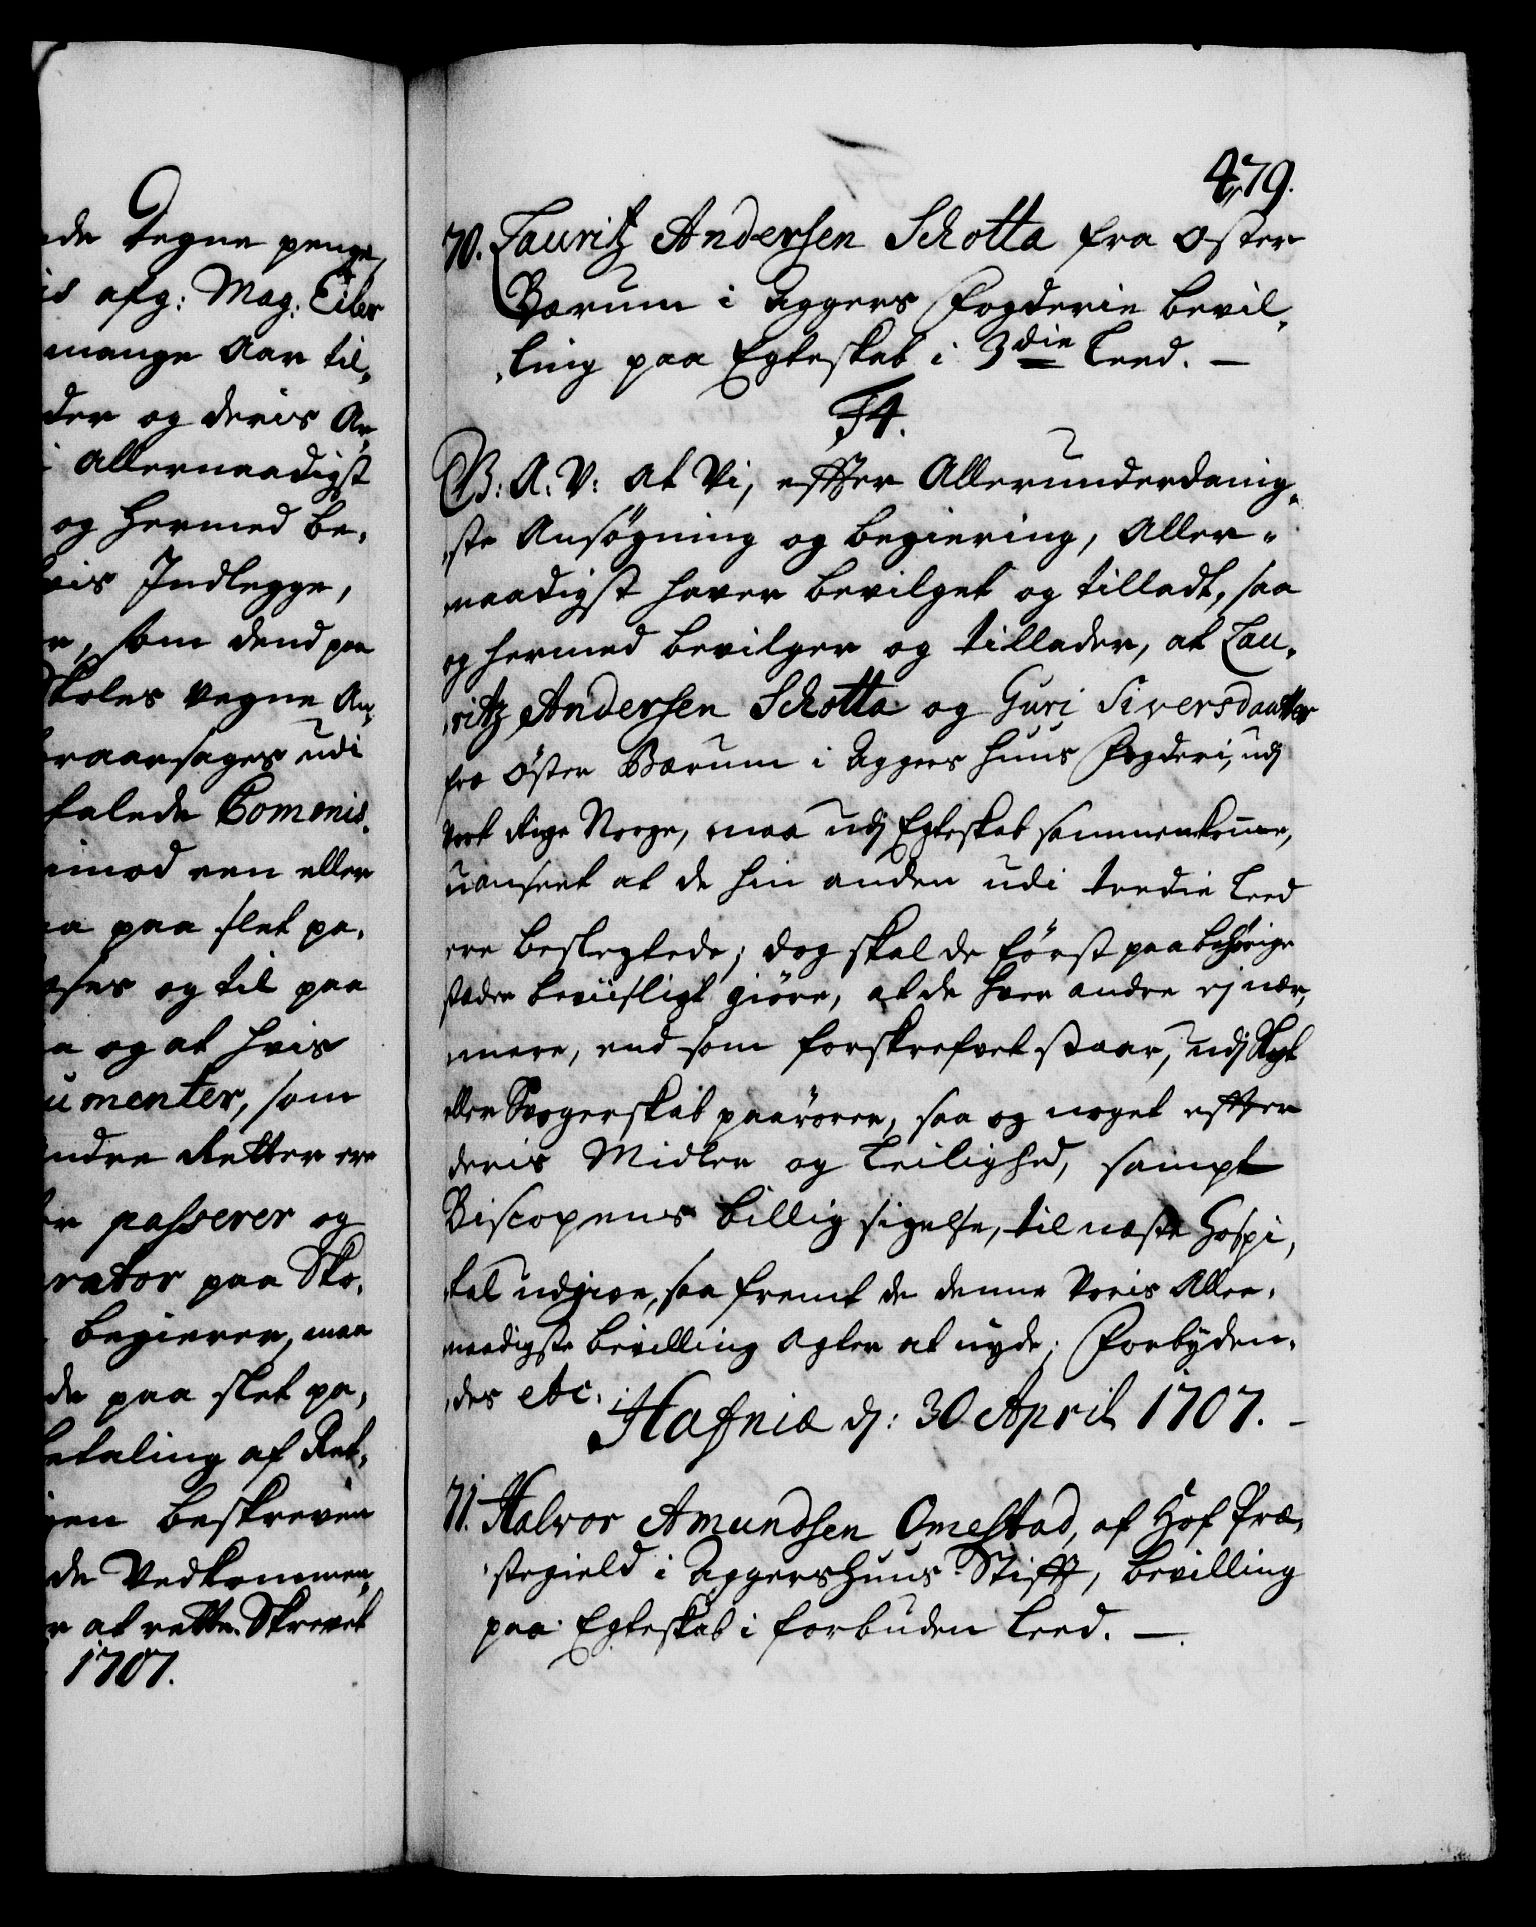 de Degne penge,
is afg: Mag: Eiler
mange Aar til,
der og deris Ar,
i allernaadigst
og hermed be,
vis Indlegge,
r, som dend paa
Skoles vegne An,
raarsages udi
falede Commis,
imod een eller
a paa slet pa,
og til paa
a og at hvis
umenter, som
ndre Retter ere
r passerer og
rator paa Sko,
begierer, maa
de paa slet pa,
etaling af Ret,
gen beskreven
de Vedkommen,
r at rette. Skrevet
1707.
479.
70. Lauritz Andersen Schotta fra Oster
Bærum i Aggers Fogderie bevil,
,ling paa Egteskab i 3die Leed. —
F4.
B: A: V: at Vi, effter Allerunderdanig,
,ste Ansøgning og begiering, Aller,
naadigst haver bevilget og tilladt, saa
og hermed bevilger og tillader, at Lau,
,ritz Andersen Schotta og Guri Siversdaatter
fra Øster Bærum i Aggers huus Fogderi, udj
Vort Rige Norge, maa udj Egteskab sammenkomme,
uanseet at de hin anden udi tredie Leed
ere beslegtede; dog skal de först paa behörige
stæder beviisligt giöre, at de hver andre ej nær,
mere, end som forskrefvet staar, udj Slegt
eller Svogerskab paarörer, saa og noget effter
deris Midler og Leilighed, sampt
Biscopens billig sigelse, til næste Hospi,
,tal udgive, saa fremt de denne Voris Aller,
naadigste bevilling agter at nyde; Forbyden,
,des etc. Hafniæ dj: 30 April 1707. —
71. Halvor Amundsen Omestad, af Hof Præ,
,stegield i Aggershuus Stifft, bevilling
paa Egteskab i forbuden Leed. —